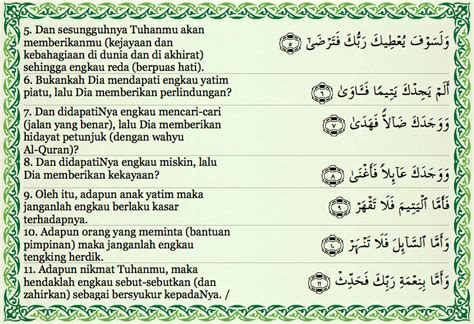 5. Dan sesungguhnya Tuhanmu akan
memberikanmu (kejayaan dan
kebahagiaan di dunia dan di akhirat)
sehingga engkau reda (berpuas hati).
وَلَسَوْفَ يُعْطِيكَ رَبُّكَ فَتَرْضَىٰٓ ٥
6. Bukankah Dia mendapati engkau yatim
piatu, lalu Dia memberikan perlindungan?
أَلَمْ يَجِدْكَ يَتِيمًا فَـَٔاوَىٰ ٦
7. Dan didapatiNya engkau mencari-cari
(jalan yang benar), lalu Dia memberikan
hidayat petunjuk (dengan wahyu
Al-Quran)?
وَوَجَدَكَ ضَآلًّا فَهَدَىٰ ٧
8. Dan didapatiNya engkau miskin, lalu
Dia memberikan kekayaan?
وَوَجَدَكَ عَآئِلًا فَأَغْنَىٰ ٨
9. Oleh itu, adapun anak yatim maka
janganlah engkau berlaku kasar
terhadapnya.
فَأَمَّا ٱلْيَتِيمَ فَلَا تَقْهَرْ ٩
10. Adapun orang yang meminta (bantuan
pimpinan) maka janganlah engkau
tengking herdik.
وَأَمَّا ٱلسَّآئِلَ فَلَا تَنْهَرْ ١٠
11. Adapun nikmat Tuhanmu, maka
hendaklah engkau sebut-sebutkan (dan
zahirkan) sebagai bersyukur kepadaNya. /
وَأَمَّا بِنِعْمَةِ رَبِّكَ فَحَدِّثْ ١١